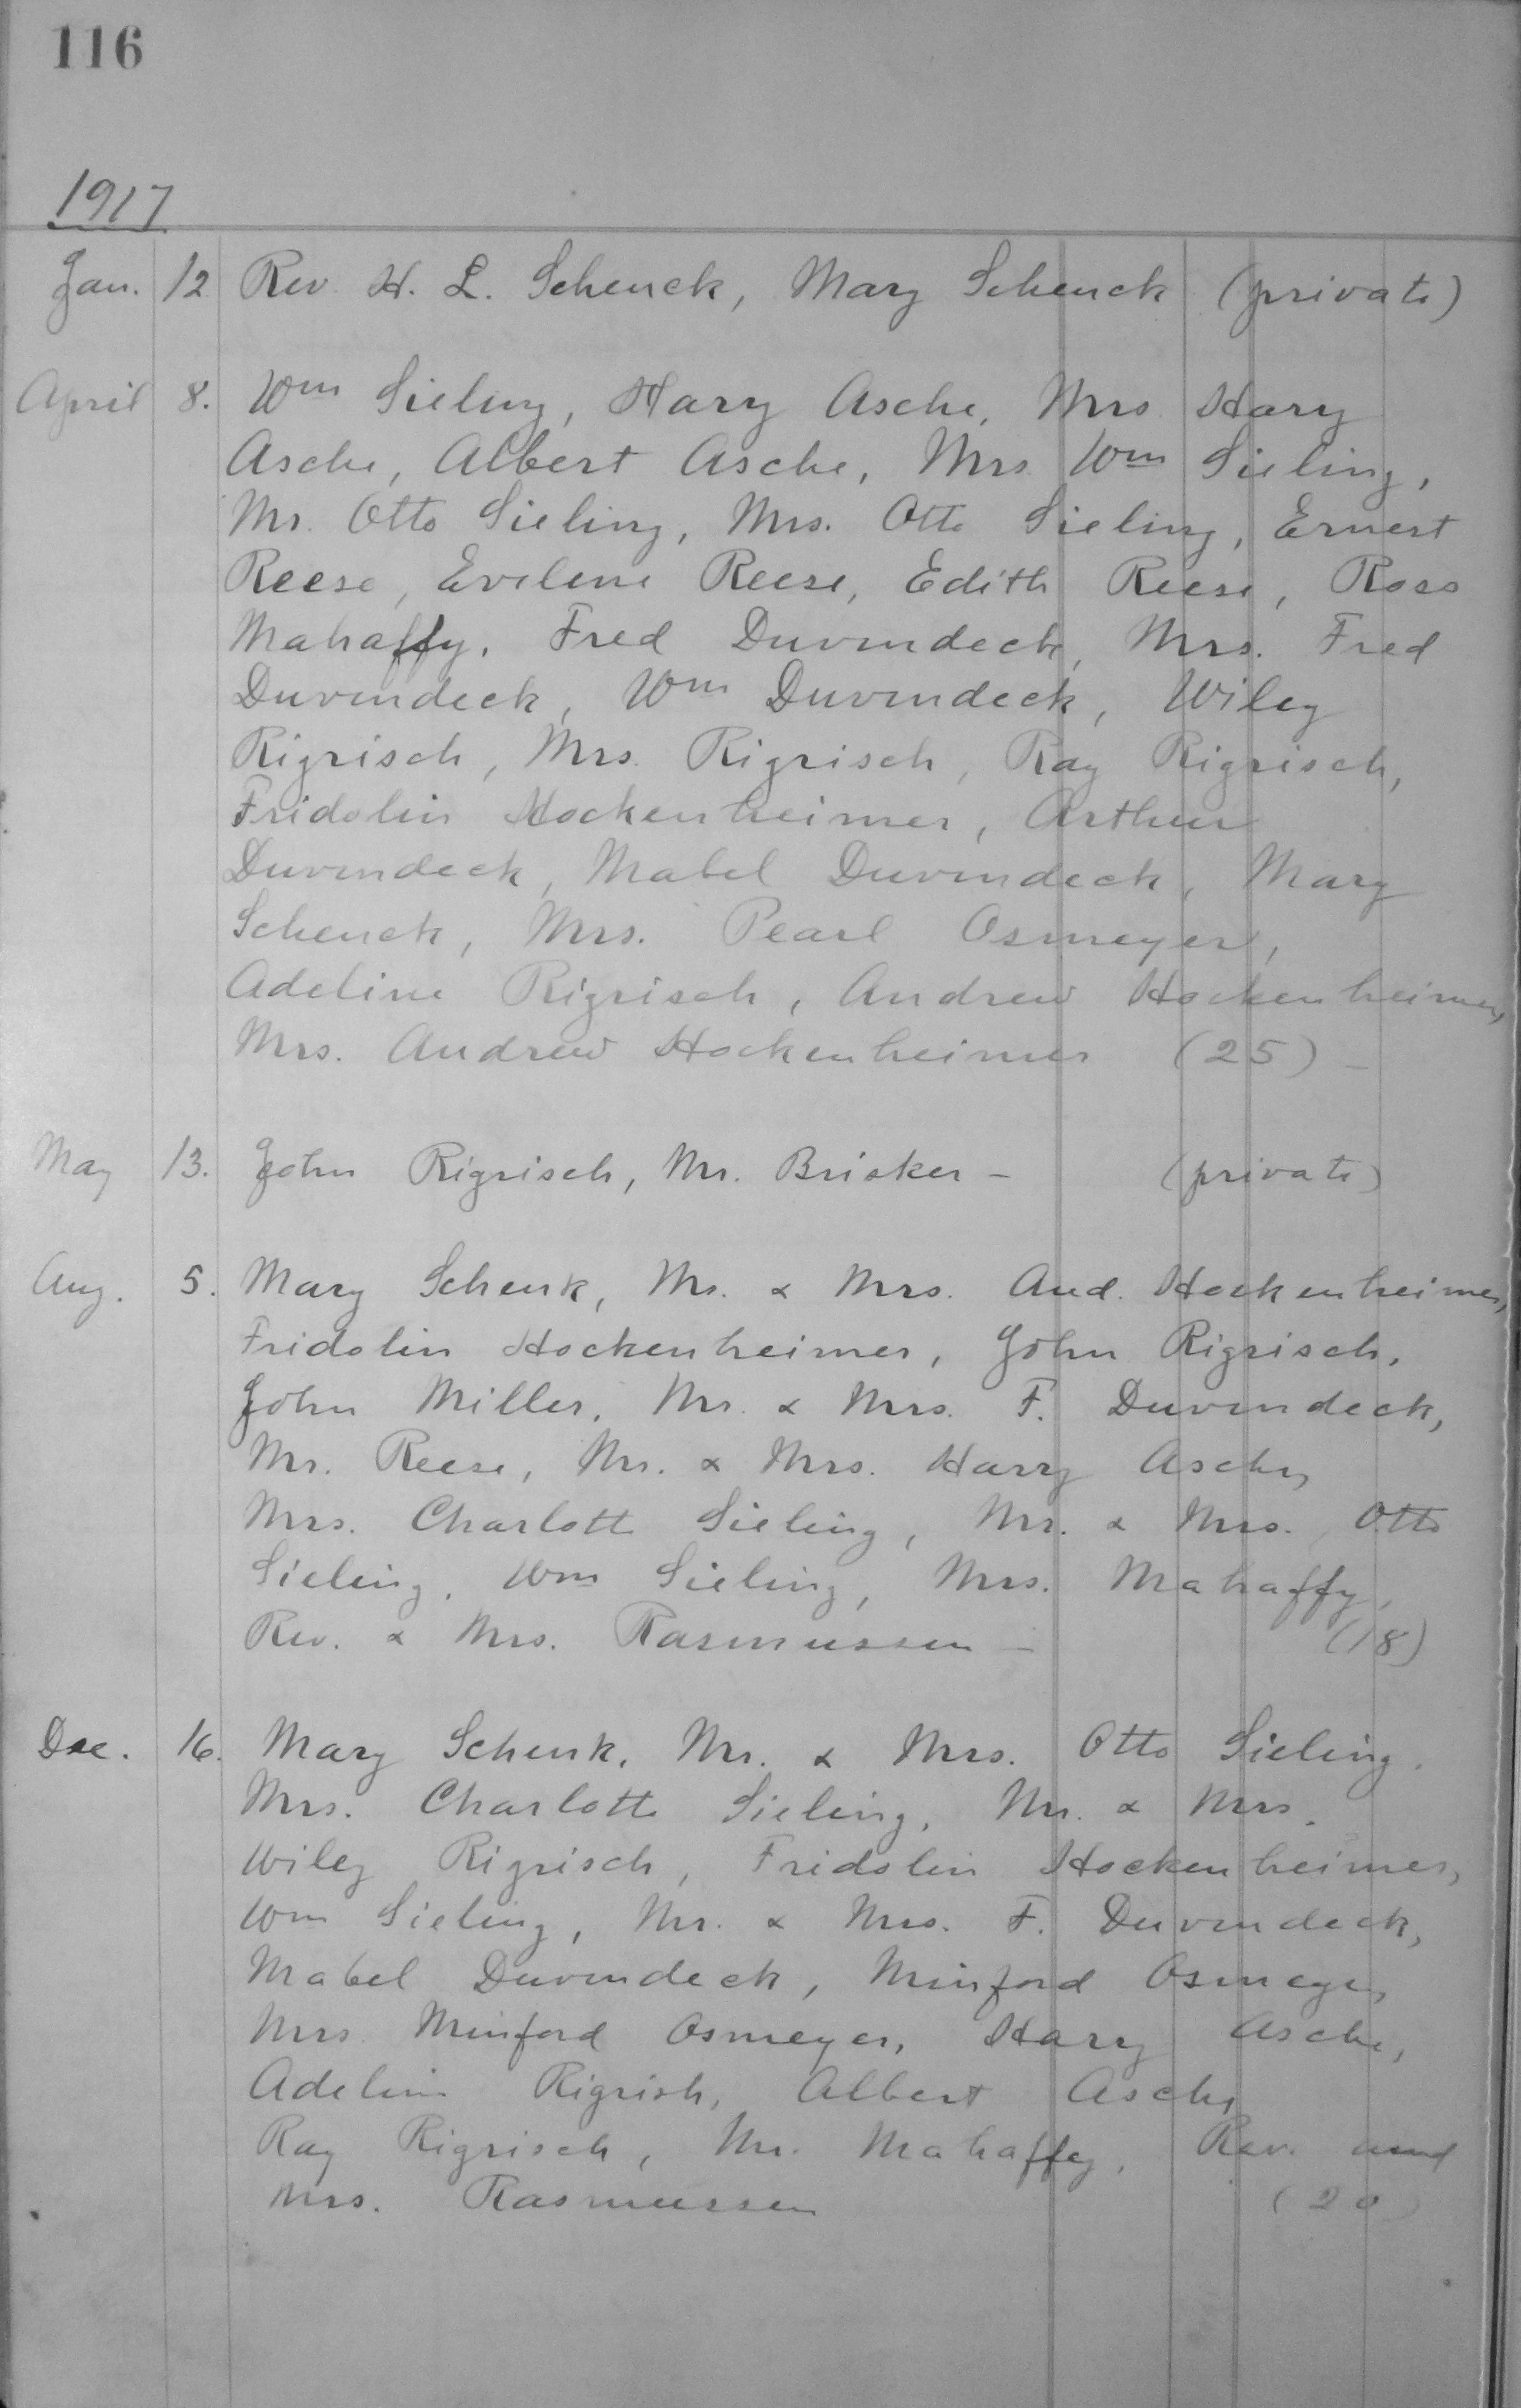 116
1917
Jan. 12 Rev. H. L. Schenck, Mary Schenck (private)
April 8. Wm Sieling, Harry Asche, Mrs Harry
Asche, Albert Asche, Mrs. Wm Sieling,
Mr. Otto Sieling, Mrs. Otto Sieling, Ernest
Reese, Evelene Reese, Edith Reese, Ross
Mahaffy, Fred Duvendeck, Mrs. Fred
Duvendeck, Wm Duvendeck, Wiley
Rigrisch, Mrs. Rigrisch, Ray Rigrisch,
Fridolin Hockenheimer, Arthur
Duvendeck, Mabel Duvendeck, Mary
Schenck, Mrs. Pearl Osmeyer,
Adeline Rigrisch, Andrew Hockenheimer,
Mrs. Andrew Hockenheimer (25) -
May 13. John Rigrisch, Mr. Brisker - (private)
Aug. 5. Mary Schenk, Mr. & Mrs. And. Hockenheimer,
Fridolin Hockenheimer, John Rigrisch,
John Miller, Mr. & Mrs. F. Duvendeck,
Mr. Reese, Mr. & Mrs. Harry Asche,
Mrs. Charlotte Sieling, Mr. & Mrs. Otto
Sieling, Wm Sieling, Mrs. Mahaffy,
Rev. & Mrs. Rasmussen - (18)
Dec. 16. Mary Schenk, Mr. & Mrs. Otto Sieling,
Mrs. Charlotte Sieling, Mr. & Mrs.
Wiley Rigrisch, Fridolin Hockenheimer,
Wm Sieling, Mr. & Mrs. F. Duvendeck,
Mabel Duvendeck, Minford Osmeyer,
Mrs Minford Osmeyer, Harry Asche,
Adeline Rigrish, Albert Asche,
Ray Rigrisch, Mr. Mahaffey, Rev. and
Mrs. Rasmussen (20)